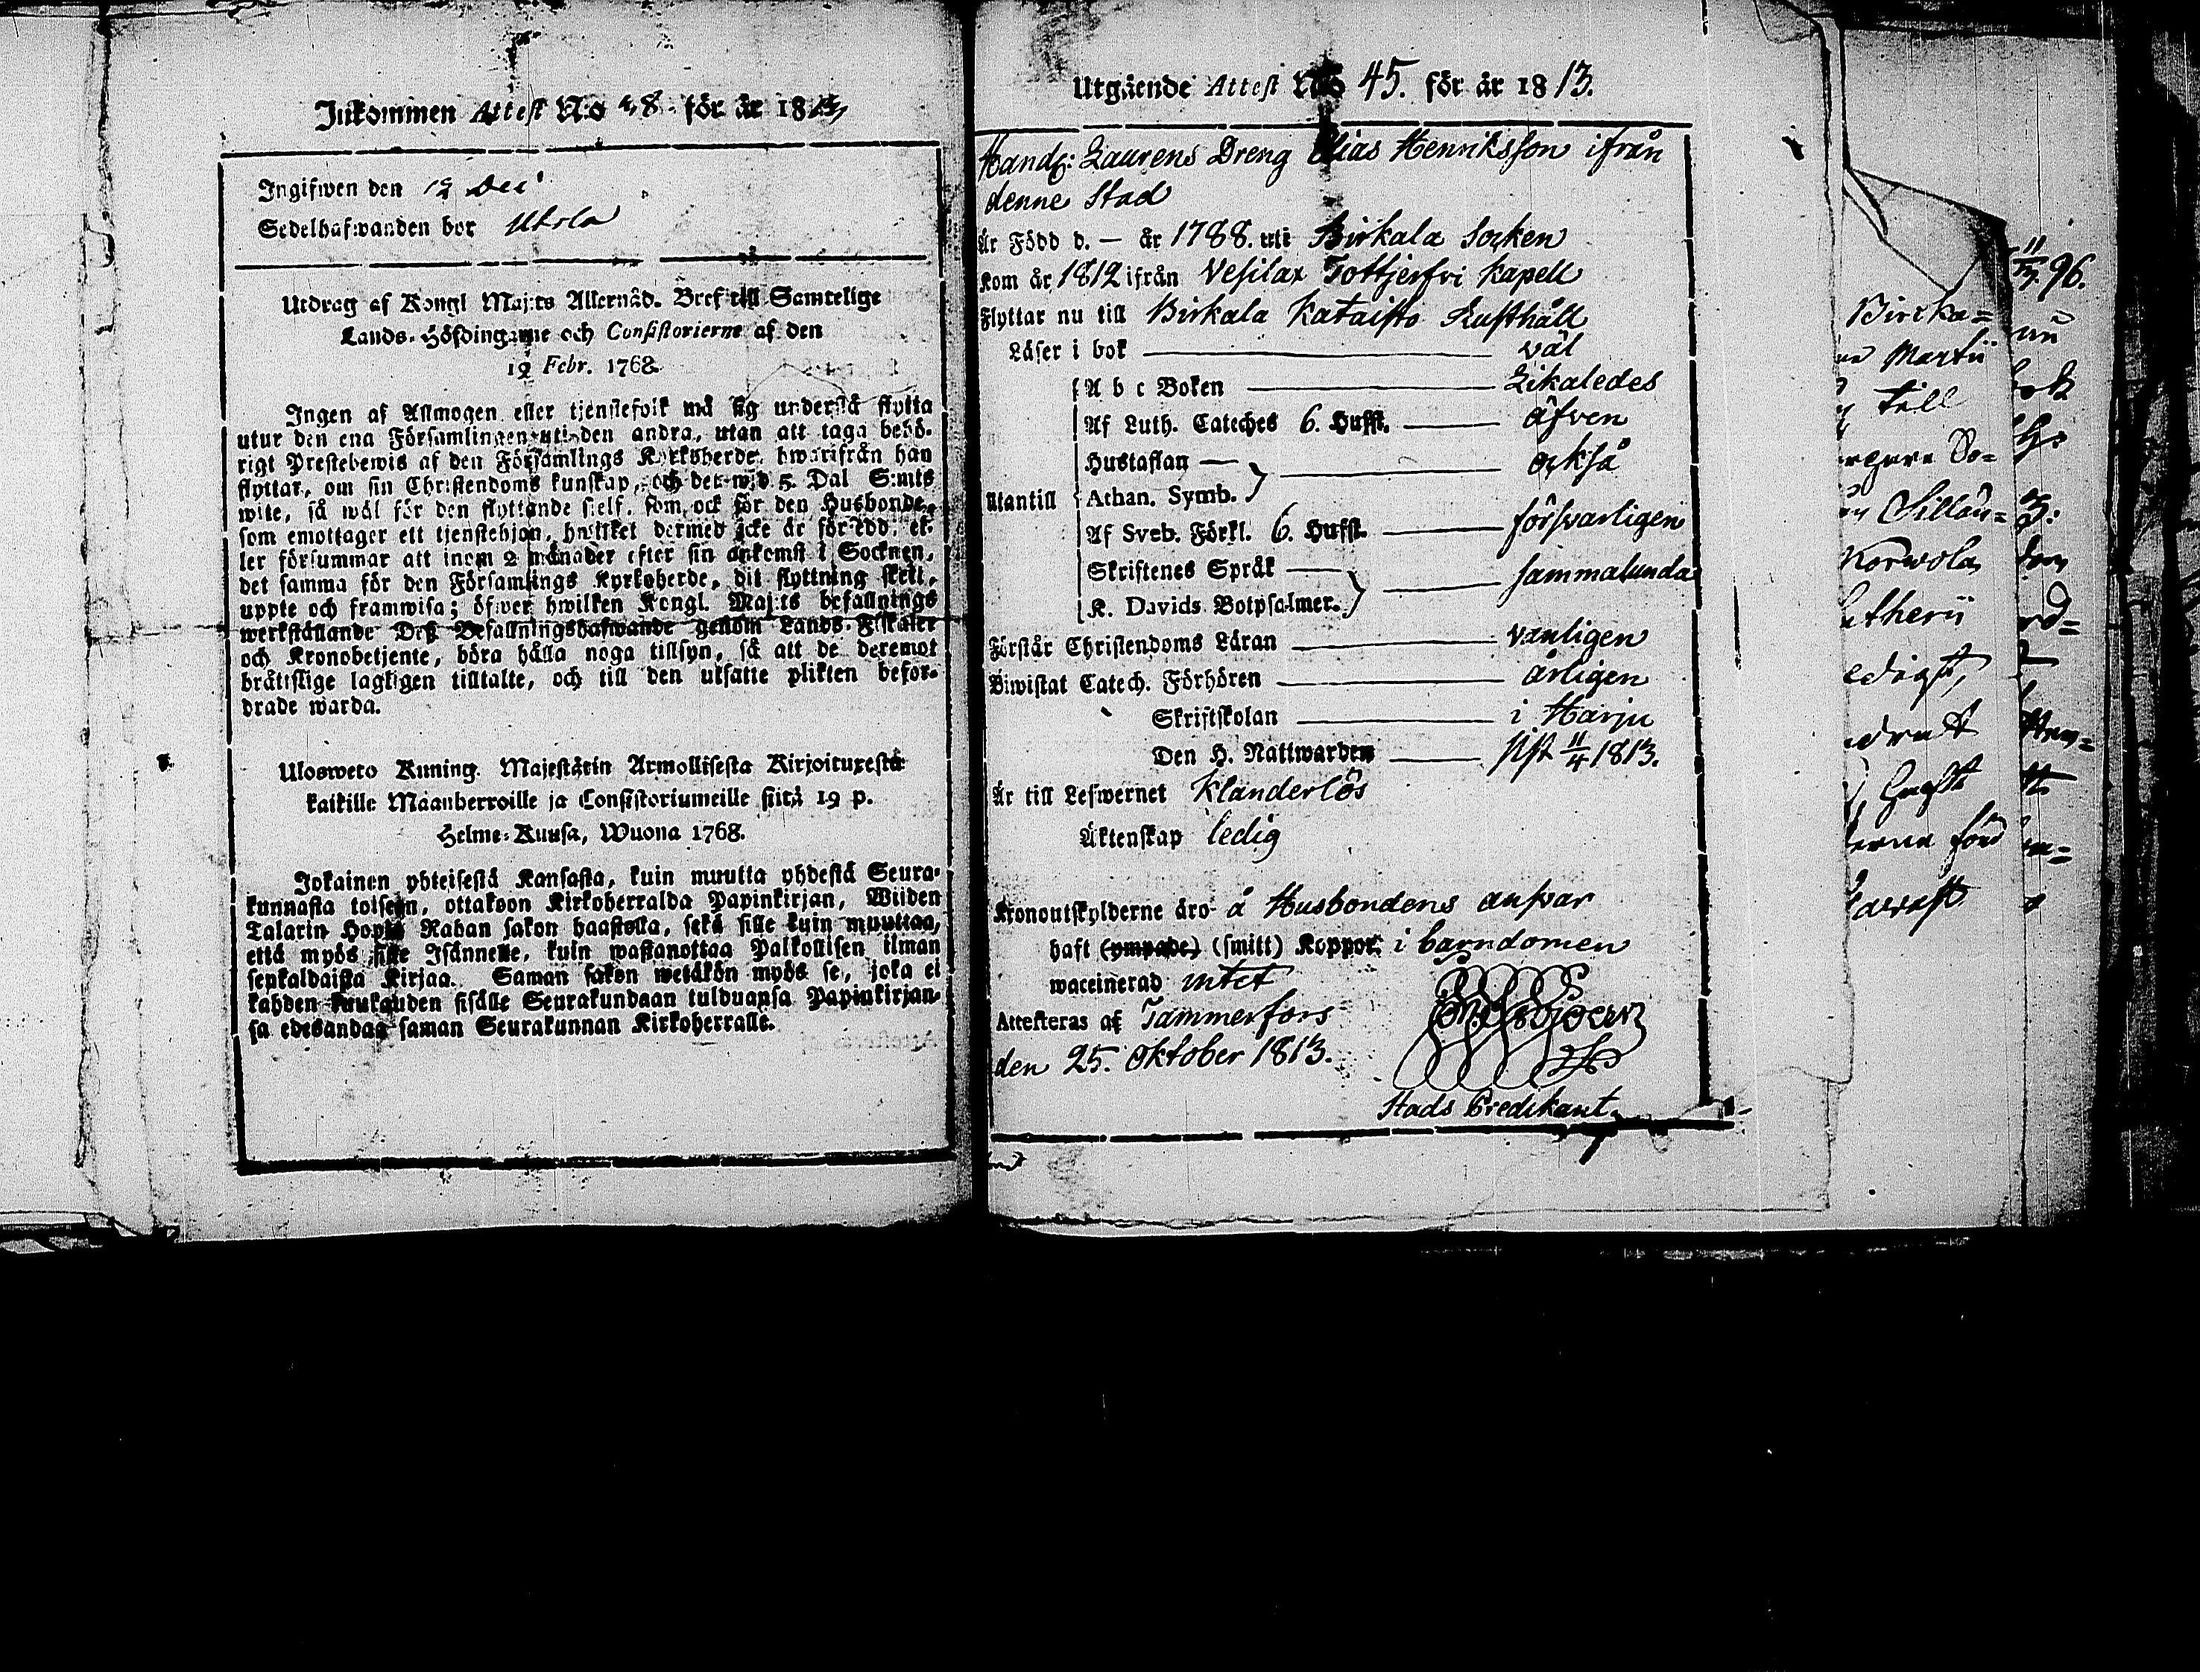 Inkommen Attest N:o 38 för år 1813
Ingifwen den 12 Dec
Sedelhafwanden bor
Utdrag af Kongl Maj:ts Allernåd. Bref till Samtelige
Lands-Höfdingarne och Consistorierne af den
19 Febr. 1768.
Ingen af Allmogen eller tjenstefolk må sig understå flytta
utur den ena Församlingen uti den andra, utan att taga behö-
rigt Prestebewis af den Församlings Kyrkoherde, hwarifrån han
flyttar, om sin Christendoms kunskap, och det wid 5. Dal S:mts
wite, så wäl för den flyttande sielf, som ock för den Husbonde,
som emottager ett tjenstehjon, hwilket dermed icke är försedd, el-
ler försummar att inom 2 månader efter sin ankomst i Socknen,
det samma för den Församlings Kyrkoherde, dit flyttning skett,
uppte och framwisa; öfwer hwilken Kongl. Maj:ts befallnings
werkställande Deß Befallningshafwande genom Lands-Fiskaler
och Kronobetjente, böra hålla noga tillsyn, så att de deremot
bråttslige lagligen tilltalte, och till den utsatte plikten befor-
drade warda.
Ulosweto Kuning. Majestätin Armollisesta Kirjoituxesta
kaikille Maanherroille ja Consistoriumeille siitä 19 p.
Helme-Kuusa, Wuona 1768.
Jokainen yhteisestä Kansasta, kuin muutta yhdestä Seura-
kunnasta toiseen, ottakoon Kirkoherralda Papinkirjan, Wiiden
Talarin Hopia Rahan sakon haastolla, sekä sille kuin muuttaa,
että myös sille Isännelle, kuin wastanottaa Palkollisen ilman
senkaldaista Kirjaa. Saman sakon wetäkön myös se, joka ei
kahden kuukauden sisälle Seurakundaan tulduansa Papinkirjan-
sa edesandaa saman Seurakunnan Kirkoherralle.
Utgående Attest N:o 45. för år 1813.
Handl: Laurens Dreng Elias Henriksson ifrån
denne Stad
Är Född d. — år 1788. uti Birkala Socken
Kom år 1812 ifrån Vesilax Tottjerfvi Kapell
Flyttar nu till Birkala Kataisto Rusthåll
Läser i bok väl
A b c Boken Likaledes
Af Luth. Cateches 6. Hufst. äfven
Hustaflan också
Utantill Athan. Symb.
Af Sveb. Förkl. 6. Hufst. försvarligen
Skriftenes Språk sammalunda
K. Davids Botpsalmer.
Förstår Christendoms Läran vanligen
Biwistat Catech. Förhören årligen
Skriftskolan i Harju
Den H. Nattwarden sist 11/4 1813.
Är till Lefwernet Klanderlös
Äktenskap ledig
Kronoutskylderne äro å Husbondens ansvar
haft (ympade) (smitt) Koppor i barndomen
waccinerad intet
Attesteras af Tammerfors
den 25. Oktober 1813.
Stads Predikant.
11/3 96.
Birka=
Martii
till
Korwola